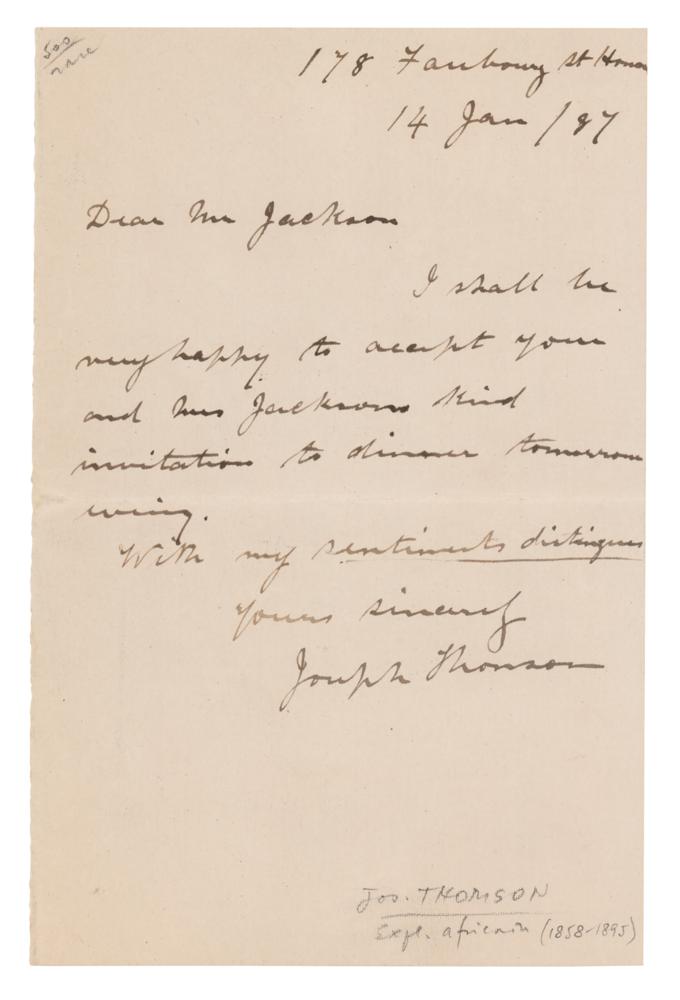 500
rare
178 Faubourg St Honor
14 Jan / 87
Dear Mr Jackson
I shall be
very happy to accept your
and Mrs Jacksons kind
invitation to dinner tomorrow
evening.
With my sentiments distingues
Yours sincerely
Joseph Thomson
Jos. THOMSON
Expl. africain (1858-1895)